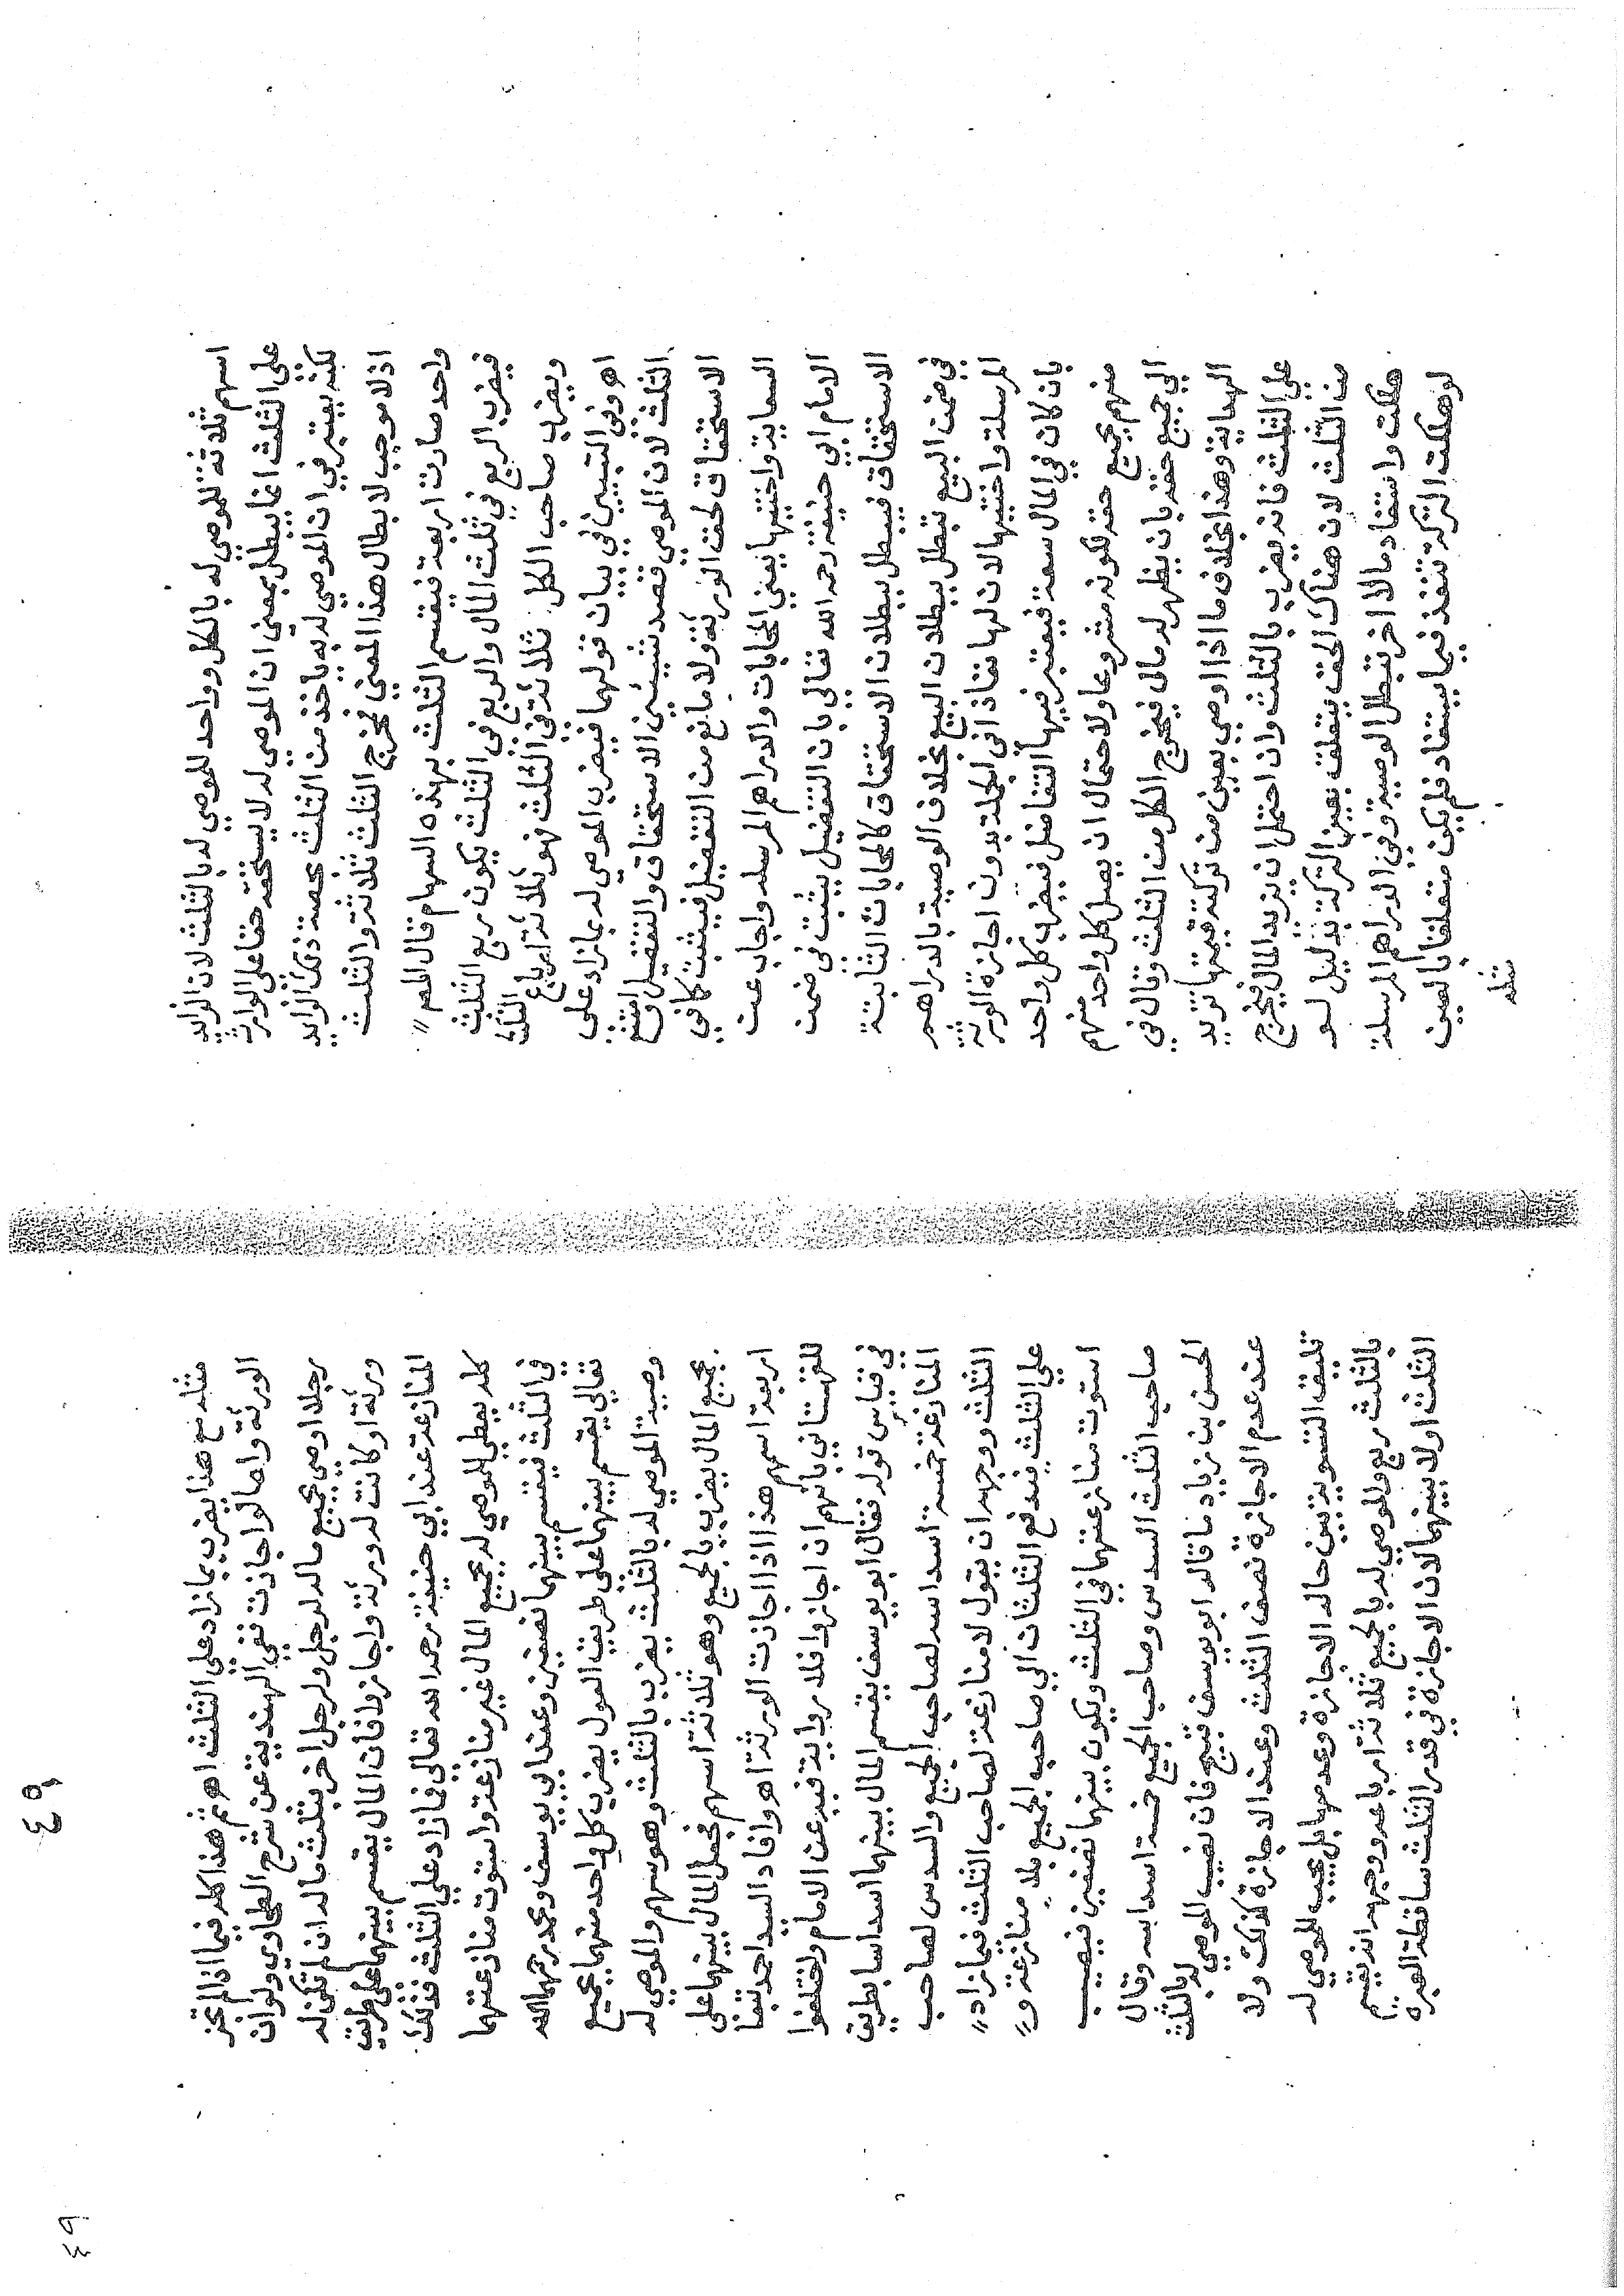 اسهم ثلاثة للموصي له بالكل وواحد للموصي له بالثلث لان الزايد
على الثلث انما يبطل بمعني ان الموصي له لا يستحقه حقا على الوارث
لكنه يعتبر في ان الموصي له به ياخذ من الثلث بحصة ذلك الزايد
اذ لا موجب لابطال هذا المعني فمخرج الثلث ثلاثة والثلث
واحد صارت اربعة فيقسم الثلث بهذه السهام قال المص
فيضرب الربع في ثلث المال والربع في الثلث يكون ربع الثلث
ويضرب صاحب الكل ثلاثة في الثلث فهو ثلاثة ارباع الثلث
اهـ وفي التبيين في بيان قولهما فيضرب الموصي له بما زاد على
الثلث لان الموصي قصد شيئين الاستحقاق والتفضيل وامتنع
الاستحقاق لحق الورثة ولا مانع من التفضيل فيثبت كما في
السعاية واختيها يعني المحابات والدراهم المرسله واجاب عن
الامام ابي حنيفة رحمه الله تعالى بان التفضيل يثبت في ضمن
الاستحقاق فيبطل ببطلان الاستحقاق كالمحابات الثابتة
في ضمن البيع تبطل ببطلان البيع بخلاف الوصية بالدراهم
المرسلة واختيها لان لها نفاذا في الجملة بدون اجازة الورثة
بان كان في المال سعة فيعتبر فيها التفاضل فيضرب كل واحد
منهم بجميع حقه لكونه مشروعا ولاحتمال ان يصل كل واحد منهم
الي جميع حقه بان يظهر له مال فيخرج الكل من الثلث وقال في
الهداية وهذا بخلاف ما اذا اوصي بعين من تركته قيمتها تزيد
علي الثلث فانه يضرب بالثلث وان احتمل ان يزيد المال فيخرج
من الثلث لان هناك الحق يتعلق بعين التركة بدليل لو
هلكت واستفاد مالا اخر تبطل الوصية وفي الدراهم المرسلة
لو هلكت التركة تنفذ فيما يستفاد فلم يكن متعلقا بالعين
مثله
مثله مع هذا يضرب بما زاد علي الثلث اهـ ثم هذا كله فيما اذا لم تجز
الورثة واما لو اجازت ففي الهندية عن شرح الطحاوي ولو ان
رجلا اوصي بجميع ماله لرجل ولرجل اخر بثلث ماله ان لم تكن له
ورثة او كانت له ورثة واجازوا فان المال يقسم بينهما على طريق
المنازعة عند ابي حنيفة رحمه الله تعالى فما زاد علي الثلث فذلك
كله يعطي للموصي له بجميع المال غير منازعة واستوت منازعتهما
في الثلث فيقسم بينهما نصفين وعند ابي يوسف ومحمد رحمهما الله
تعالي يقسم بينهما على طريق العول يضرب كل واحد منهما بجميع
وصية الموصي له بالثلث يضرب بالثلث وهو سهم والموصي له
بجميع المال يضرب بالجميع وهو ثلاثة اسهم فجعل المال بينهما على
اربعة اسهم هذا اذا اجازت الورثة اهـ وافاد السيد احمد تبعا
للقهستاني بانهم ان اجازوا فلا رواية فيه عن الامام واختلفوا
في قياس قوله فقال ابو يوسف يقسم المال بينهما اسداسا بطريق
المنازعة خمسة اسداسه لصاحب الجميع والسدس لصاحب
الثلث ووجهه ان يقول لا منازعة لصاحب الثلث فيما زاد
علي الثلث فيدفع الثلثان الي صاحب الجميع بلا منازعة و
استوت منازعتهما في الثلث ويكون بينهما نصفين فيصيب
صاحب الثلث السدس وصاحب الجميع خمسة اسداسه وقال
الحسن بن زياد ما قاله ابو يوسف قبيح فان نصيب الموصي له بالثلث
عند عدم الاجازة نصف الثلث وعند الاجازة كذلك ولا
تليق التسوية بين حالة الاجازة وعدمها بل يجب للموصي له
بالثلث ربع والموصي له بالجميع ثلاثة ارباعه ووجهه انه يقسم
الثلث اولا بينهما لان الاجازة في قدر الثلث ساقطة العبره
٤٩
٤٩